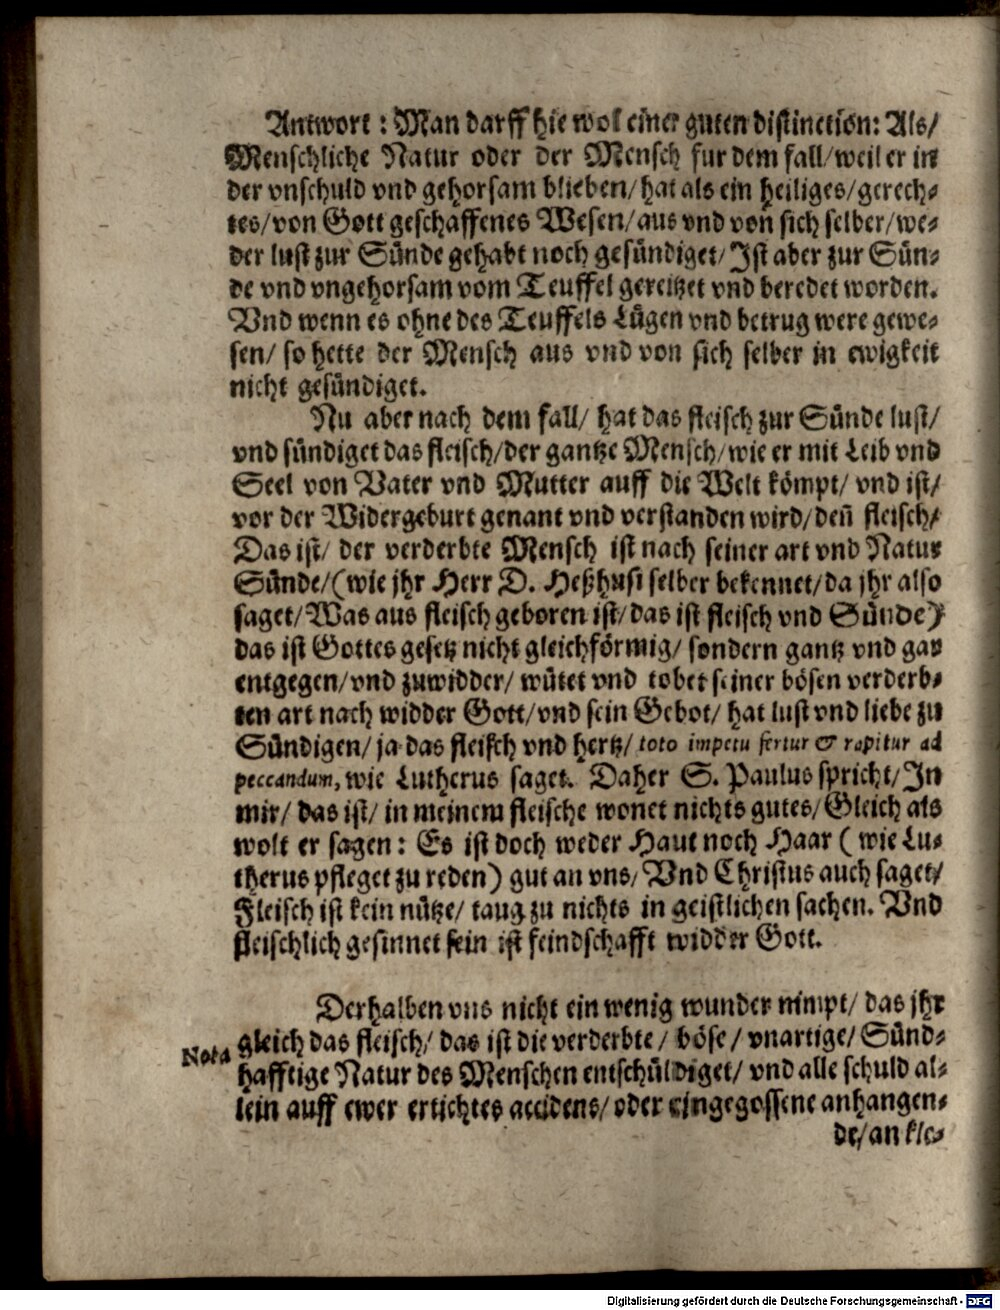 Antwort: Man darff hie wol einer guten distinction: Als/
Menschliche Natur oder der Mensch fur dem fall/weil er in
der vnschuld vnd gehorsam blieben/hat als ein heiliges/gerech-
tes/von Gott geschaffenes Wesen/aus vnd von sich selber/we-
der lust zur Sünde gehabt noch gesündiget/Jst aber zur Sün-
de vnd vngehorsam vom Teuffel gereitzet vnd beredet worden.
Vnd wenn es ohne des Teuffels Lügen vnd betrug were gewe-
sen/ so hette der Mensch aus vnd von sich selber in ewigkeit
nicht gesündiget.
Nu aber nach dem fall/ hat das fleisch zur Sünde lust/
vnd sündiget das fleisch/der gantze Mensch/wie er mit Leib vnd
Seel von Vater vnd Mutter auff die Welt kömpt/ vnd ist/
vor der Widergeburt genant vnd verstanden wird/deñ fleisch/
Das ist/ der verderbte Mensch ist nach seiner art vnd Natur
Sünde/(wie jhr Herr D. Heßhusi selber bekennet/da jhr also
saget/Was aus fleisch geboren ist/das ist fleisch vnd Sünde)
das ist Gottes gesetz nicht gleichförmig/ sondern gantz vnd gar
entgegen/vnd zuwidder/ wütet vnd tobet seiner bösen verderb-
ten art nach widder Gott/vnd sein Gebot/ hat lust vnd liebe zu
Sündigen/ ja das fleisch vnd hertz/ toto impetu fertur & rapitur ad
peccandum, wie Lutherus saget. Daher S. Paulus spricht/Jn
mir/ das ist/ in meinem fleische wonet nichts gutes/Gleich als
wolt er sagen: Es ist doch weder Haut noch Haar (wie Lu-
therus pfleget zu reden) gut an vns/ Vnd Christus auch saget/
Fleisch ist kein nütze/ taug zu nichts in geistlichen sachen. Vnd
fleischlich gesinnet sein ist feindschafft widder Gott.
Derhalben vns nicht ein wenig wunder nimpt/ das jhr
Nota gleich das fleisch/ das ist die verderbte/ böse/ vnartige/ Sünd-
hafftige Natur des Menschen entschüldiget/ vnd alle schuld al-
lein auff ewer ertichtes accidens/ oder eingegossene anhangen-
de/an kle-
Digitalisierung gefördert durch die Deutsche Forschungsgemeinschaft - DFG